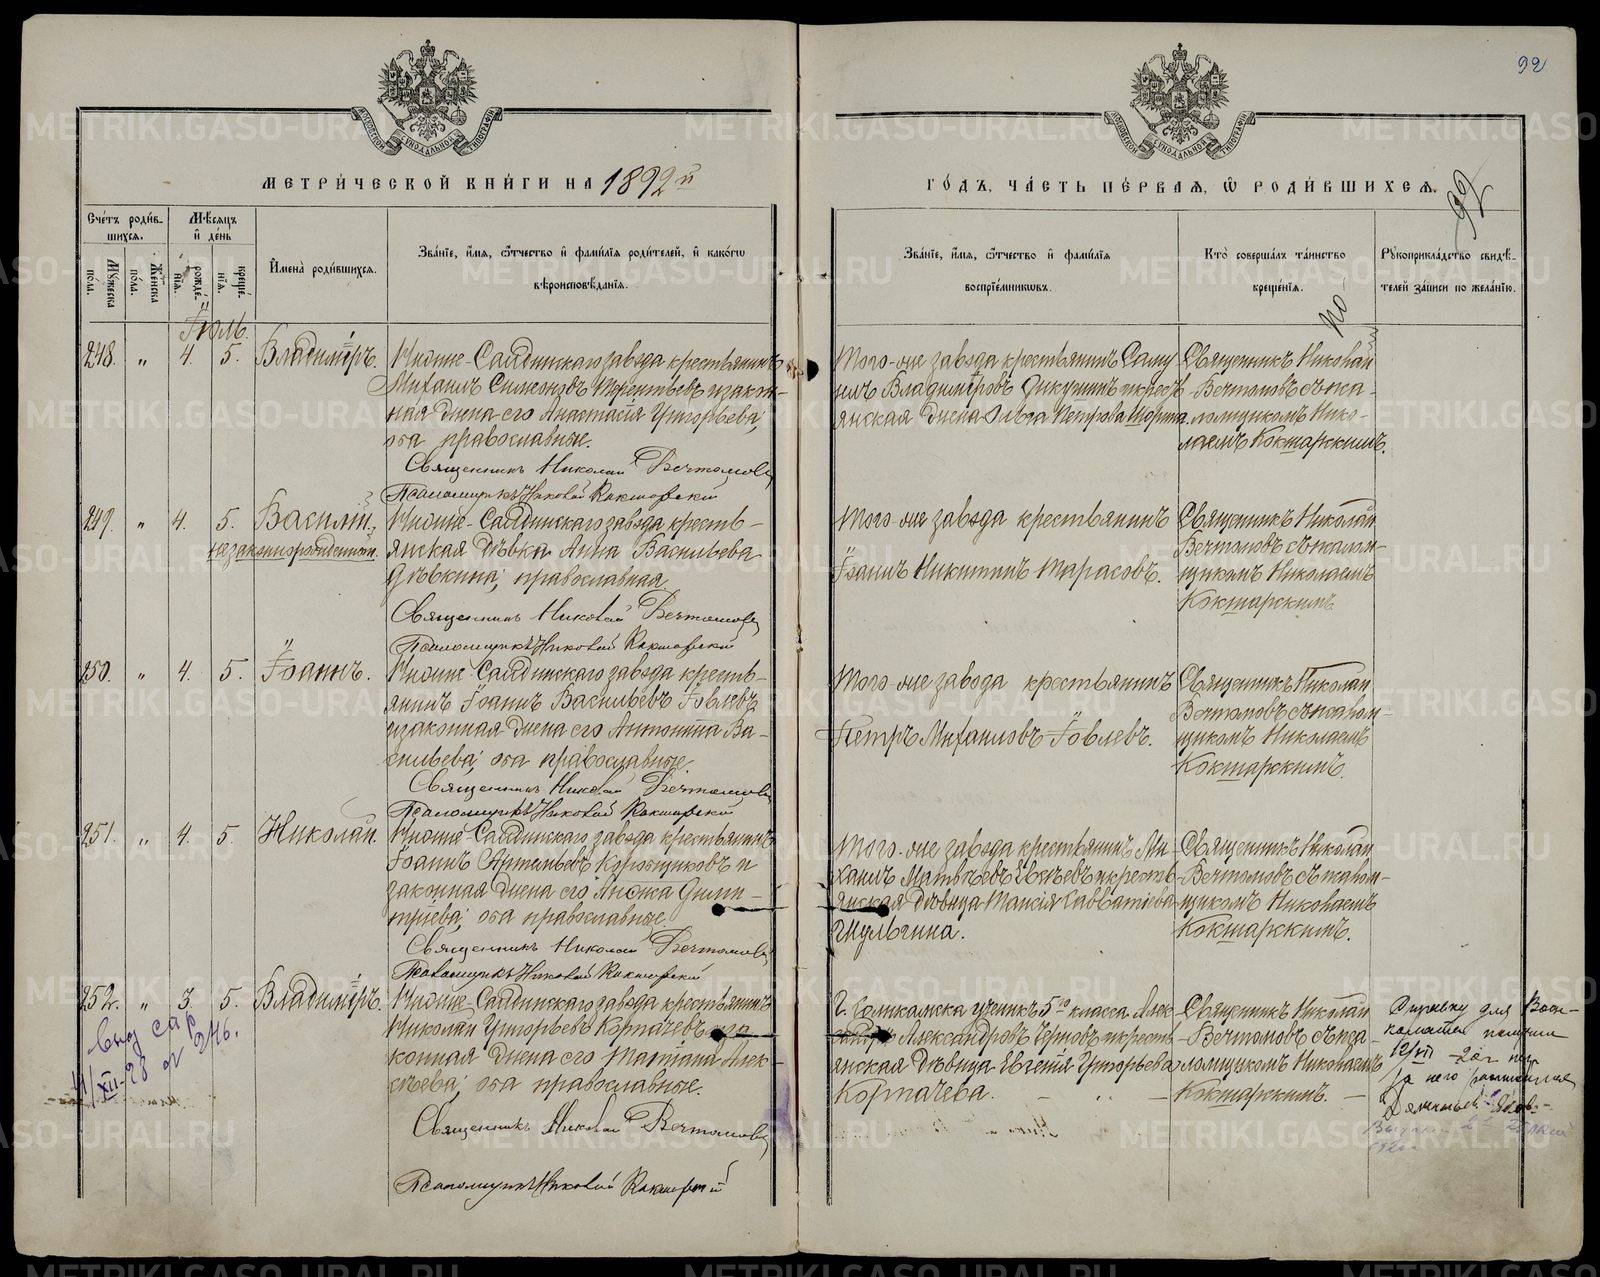 92
МЕТРИ́ЧЕСКОЙ КНИ́ГИ НА 1892й
ГО́ДЪ, ЧА́СТЬ ПЕ́РВАЯ, Ѿ РОДИ́ВШИХСЯ.
92
Сче́тъ роди́в-
шихся.
Мѣсяцъ
и де́нь
Му́жеска по́ла.
Же́нска по́ла.
рожде́нія.
креще́нія.
Имена̀ роди́вшихся.
Зва́ніе, и́мя, ѻ́тчество и фами́лія роди́телей, и како́гѡ
вѣроисповѣ́данія.
Зва́ніе, и́мя, ѻ́тчество и фами́лія
воспріе́мникѡвъ.
Кто̀ соверша́лъ та́инство
креще́нія.
Рꙋкоприкла́дство свидѣ́-
телей за́писи по жела́нію.
Іюль.
248. „ 4. 5. Владиміръ.
Нижне-Салдинскаго завода крестьянинъ
Михаилъ Симеоновъ Терентьевъ и закон-
ная жена его Анастасія Григорьева;
оба православные.
Священникъ Николай Вечтомовъ
Псаломщикъ Николай Кокшарскій
Того-же завода крестьянинъ Саму-
илъ Владиміровъ Дикушинъ и кресть-
янская жена Ольга Петрова Шорина.
Священникъ Николай
Вечтомовъ съ пса-
ломщикомъ Нико-
лаемъ Кокшарскимъ.
249. „ 4. 5. Василій,
незаконнорожденный.
Нижне-Салдинскаго завода кресть-
янская дѣвка Анна Васильева
Дѣвкина; православная.
Священникъ Николай Вечтомовъ
Псаломщикъ Николай Кокшарскій
Того-же завода крестьянинъ
Іоаннъ Никитинъ Тарасовъ.
Священникъ Николай
Вечтомовъ съ псалом-
щикомъ Николаемъ
Кокшарскимъ
250. „ 4. 5. Іоаннъ.
Нижне-Салдинскаго завода кресть-
янинъ Іоаннъ Васильевъ Іовлевъ
и законная жена его Антонина Ва-
сильева; оба православные.
Священникъ Николай Вечтомовъ
Псаломщикъ Николай Кокшарскій
Того-же завода крестьянинъ
Петръ Михаиловъ Іовлевъ.
Священникъ Николай
Вечтомовъ съ псалом-
щикомъ Николаемъ
Кокшарскимъ.
251. „ 4. 5. Николай.
Нижне-Салдинскаго завода крестьянинъ
Іоаннъ Артемьевъ Коробщиковъ и
законная жена его Анфиса Дими-
тріева; оба православные.
Священникъ Николай Вечтомовъ
Псаломщикъ Николай Кокшарскій
Того-же завода крестьянинъ Ми-
хаилъ Матѳеевъ Евсѣевъ и кресть-
янская дѣвица Таисія Савватіева
Шульгина.
Священникъ Николай
Вечтомовъ съ псалом-
щикомъ Николаемъ
Кокшарскимъ.
252. „ 3. 5. Владиміръ.
Нижне-Салдинскаго завода крестьянинъ
Николай Григорьевъ Корпачевъ и за-
конная жена его Татіана Алек-
сѣева; оба православные.
Священникъ Николай Вечтомовъ
Псаломщикъ Николай Кокшарскій
Г. Соликамска ученикъ 5го класса Алек-
сандръ Александровъ Черновъ и кресть-
янская дѣвица Евгенія Григорьева
Корпачева.
Священникъ Николай
Вечтомовъ съ пса-
ломщикомъ Николаемъ
Кокшарскимъ.
для Воен-
получил
12/VII
за него
11/XII-28